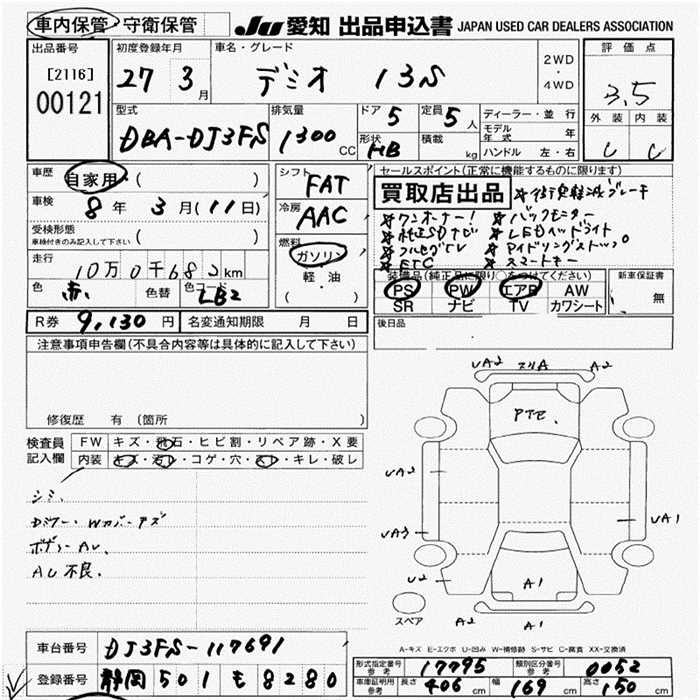 車内保管・守衛保管
JU 愛知 出品申込書 JAPAN USED CAR DEALERS ASSOCIATION
出品番号
[2116]
00121
初度登録年月
27 3月
車名・グレード
デミオ 13S
2WD
・
4WD
評価点
3.5
外装 内装
C C
型式
DBA-DJ3FS
排気量
1300 CC
ドア 5
形状 HB
定員 5人
積載 kg
ディーラー・並行
モデル年式 年
ハンドル 左・右
車歴 自家用 ( )
車検 8年 3月(11日)
受検形態
車検付きのみ記入して下さい ( )
走行
10万0千68 km
色 赤 色替 色コード LB2
シフト
FAT
冷房
AAC
燃料
ガソリン
軽・油
( )
セールスポイント(正常に機能するものに限ります)
買取店出品
ブレーキ
ワンオーナー! バックモニター
純正SDナビ LEDヘッドライト
フルセグTV アイドリングストップ
ETC スマートキー
装備品(純正品に限り○をつけてください)
PS PW エアB AW
SR ナビ TV カワシート
新車保証書
無
R券 9,130円 名変通知期限 月 日
後日品
注意事項申告欄(不具合内容等は具体的に記入して下さい)
修復歴 有 (箇所 )
検査員記入欄
FW キズ・飛石・ヒビ割・リペア跡・X要
内装 キズ・汚レ・コゲ・穴・スレ・キレ・破レ
シミ、
ボデーAU、
AU不良、
UA2 スリA A2
PTE.
UA2
UA3
UA1
U2
A1
A2
A1
スペア
A-キズ E-エクボ U-凹み W-補修跡 S-サビ C-腐食 XX-交換済
車台番号 DJ3FS-117691
登録番号 静岡 501 も 8280
形式指定番号 参考 17795 類別区分番号 参考 0052
車庫証明用 参考 長さ 406 cm 幅 169 cm 高さ 150 cm